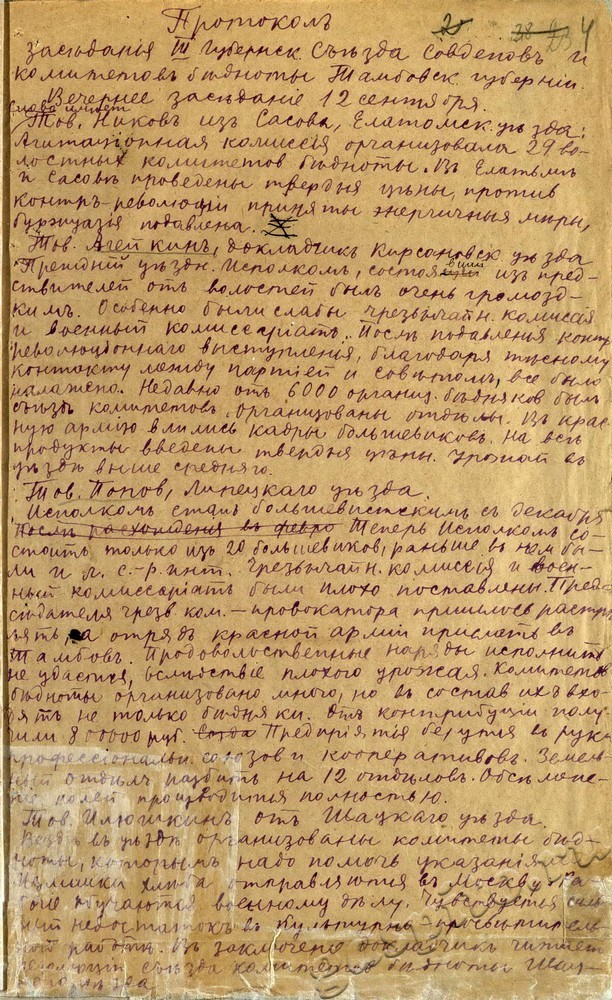 Протоколъ
засѣданія III Губернск. Съѣзда Совдеповъ и
комитетовъ бѣдноты Тамбовск. губерніи.
Вечернее засѣданіе 12 сентября.
Слово имѣет
Тов. Никовъ изъ Сасова, Елатомск. уѣзда:
Агитаціонная комиссія организовала 29 во-
лостныхъ комитетов бѣдноты. Въ Елатьмѣ
и Сасовѣ проведены твердыя цѣны, против
контръ-революціи приняты энергичныя мѣры,
буржуазія подавлена.
Тов. Агейкинъ, докладчикъ Кирсановск. уѣзда
Прежній уѣздн. Исполком, состоявшій изъ пред-
ствителей отъ волостей былъ очень громозд-
кимъ. Особенно были слабы чрезвычайн. комиссія
и военный комиссаріатъ. Послѣ подавленія контр
революціоннаго выступленія, благодаря тѣсному
контакту между партіей и совѣтомъ, все было
налажено. Недавно отъ 6000 организ. бѣдняков былъ
съѣздъ комитетовъ. Организованы отдѣлы. Въ крас-
ную армію влились кадры большевиковъ. На всѣ
продукты введены твердыя цѣны. Урожай въ
уѣздѣ выше средняго.
Тов. Поповъ, Липецкаго уѣзда.
Исполкомъ сталъ большевистскимъ съ декабря
послѣ расхожденія въ февро Теперь Исполкомъ со-
стоитъ только изъ 20 большевиков, раньше въ нем бы-
ли и л. с.-р. инт. Чрезвычайн. комиссія и воен-
ный комиссаріатъ были плохо поставлены. Пред-
сѣдателя чрезв. ком. — провокатора пришлось растрѣ
лять, а отрядъ красной арміи прислать въ
Тамбовъ. Продовольственные наряды исполнить
не удастся, вслѣдствіе плохого урожая. Комитетовъ
бѣдноты организовано много, но въ составъ ихъ вхо-
дятъ не только бѣдняки. Отъ контрибуціи полу-
чили 800000 руб. Предпріятія берутся въ руки
профессіональн. союзов и кооперативовъ. Земель-
ный отдѣлъ разбитъ на 12 отдѣловъ. Обсѣмене-
ніе полей производится полностью.
Тов. Илюшкинъ отъ Шацкаго уѣзда.
Вездѣ въ уѣздѣ организованы комитеты бѣд-
ноты, которымъ надо помочь указаніями.
Излишки хлѣба отправляются въ Москву. Ра
бочіе обучаются военному дѣлу. Чувствуется силь
ный недостатокъ въ культурно-просвѣтитель
ной работѣ. Въ заключеніе докладчикъ читаетъ
резолюцію съѣзда комитетовъ бѣдноты Шац-
каго уѣзда